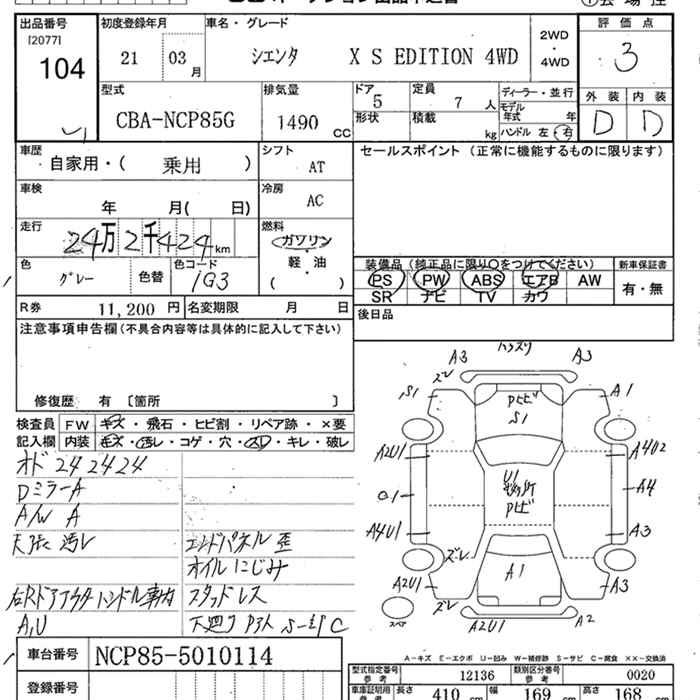 出品番号
[2077]
104
初度登録年月
21 03 月
車名・グレード
シエンタ X S EDITION 4WD
2WD
・
4WD
評価点
3
型式
CBA-NCP85G
排気量
1490 CC
ドア
5
定員
7 人
ディーラー・並行
モデル
年式 年
形状
積載
kg
ハンドル 左・右
外装 内装
D D
車歴
自家用・( 乗用 )
シフト
AT
セールスポイント (正常に機能するものに限ります)
車検
年 月( 日)
冷房
AC
走行
24万2千424km
燃料
ガソリン
軽・油
( )
色
グレー
色替
色コード
1G3
装備品 (純正品に限り○をつけてください)
新車保証書
PS PW ABS エアB AW
SR ナビ TV カワ
有・無
R券 11,200 円
名変期限 月 日
後日品
注意事項申告欄(不具合内容等は具体的に記入して下さい)
修復歴 有 [箇所 ]
検査員
記入欄
FW キズ・飛石・ヒビ割・リペア跡・×要
内装 キズ・汚レ・コゲ・穴・スレ・キレ・破レ
オド 242424
Dミラー A
A/W A
天張 汚レ
エンドパネル 歪
オイルにじみ
右Rドアアウタハンドル 車内
スタッドレス
A,U
下廻り
C
A3
A3
ズレ
S1
A1
S1
A2U1
U1
A4U2
A4
A4U1
A3
ズレ
A2U1
A1
A3
ズレ
スペア
A2U1
A2
A-キズ E-エクボ U-凹み W-補修跡 S-サビ C-腐食 XX-交換済
車台番号
NCP85-5010114
登録番号
型式指定番号
参考
12136
類別区分番号
参考
0020
車庫証明用
参考
長さ 410 cm 幅 169 cm 高さ 168 cm